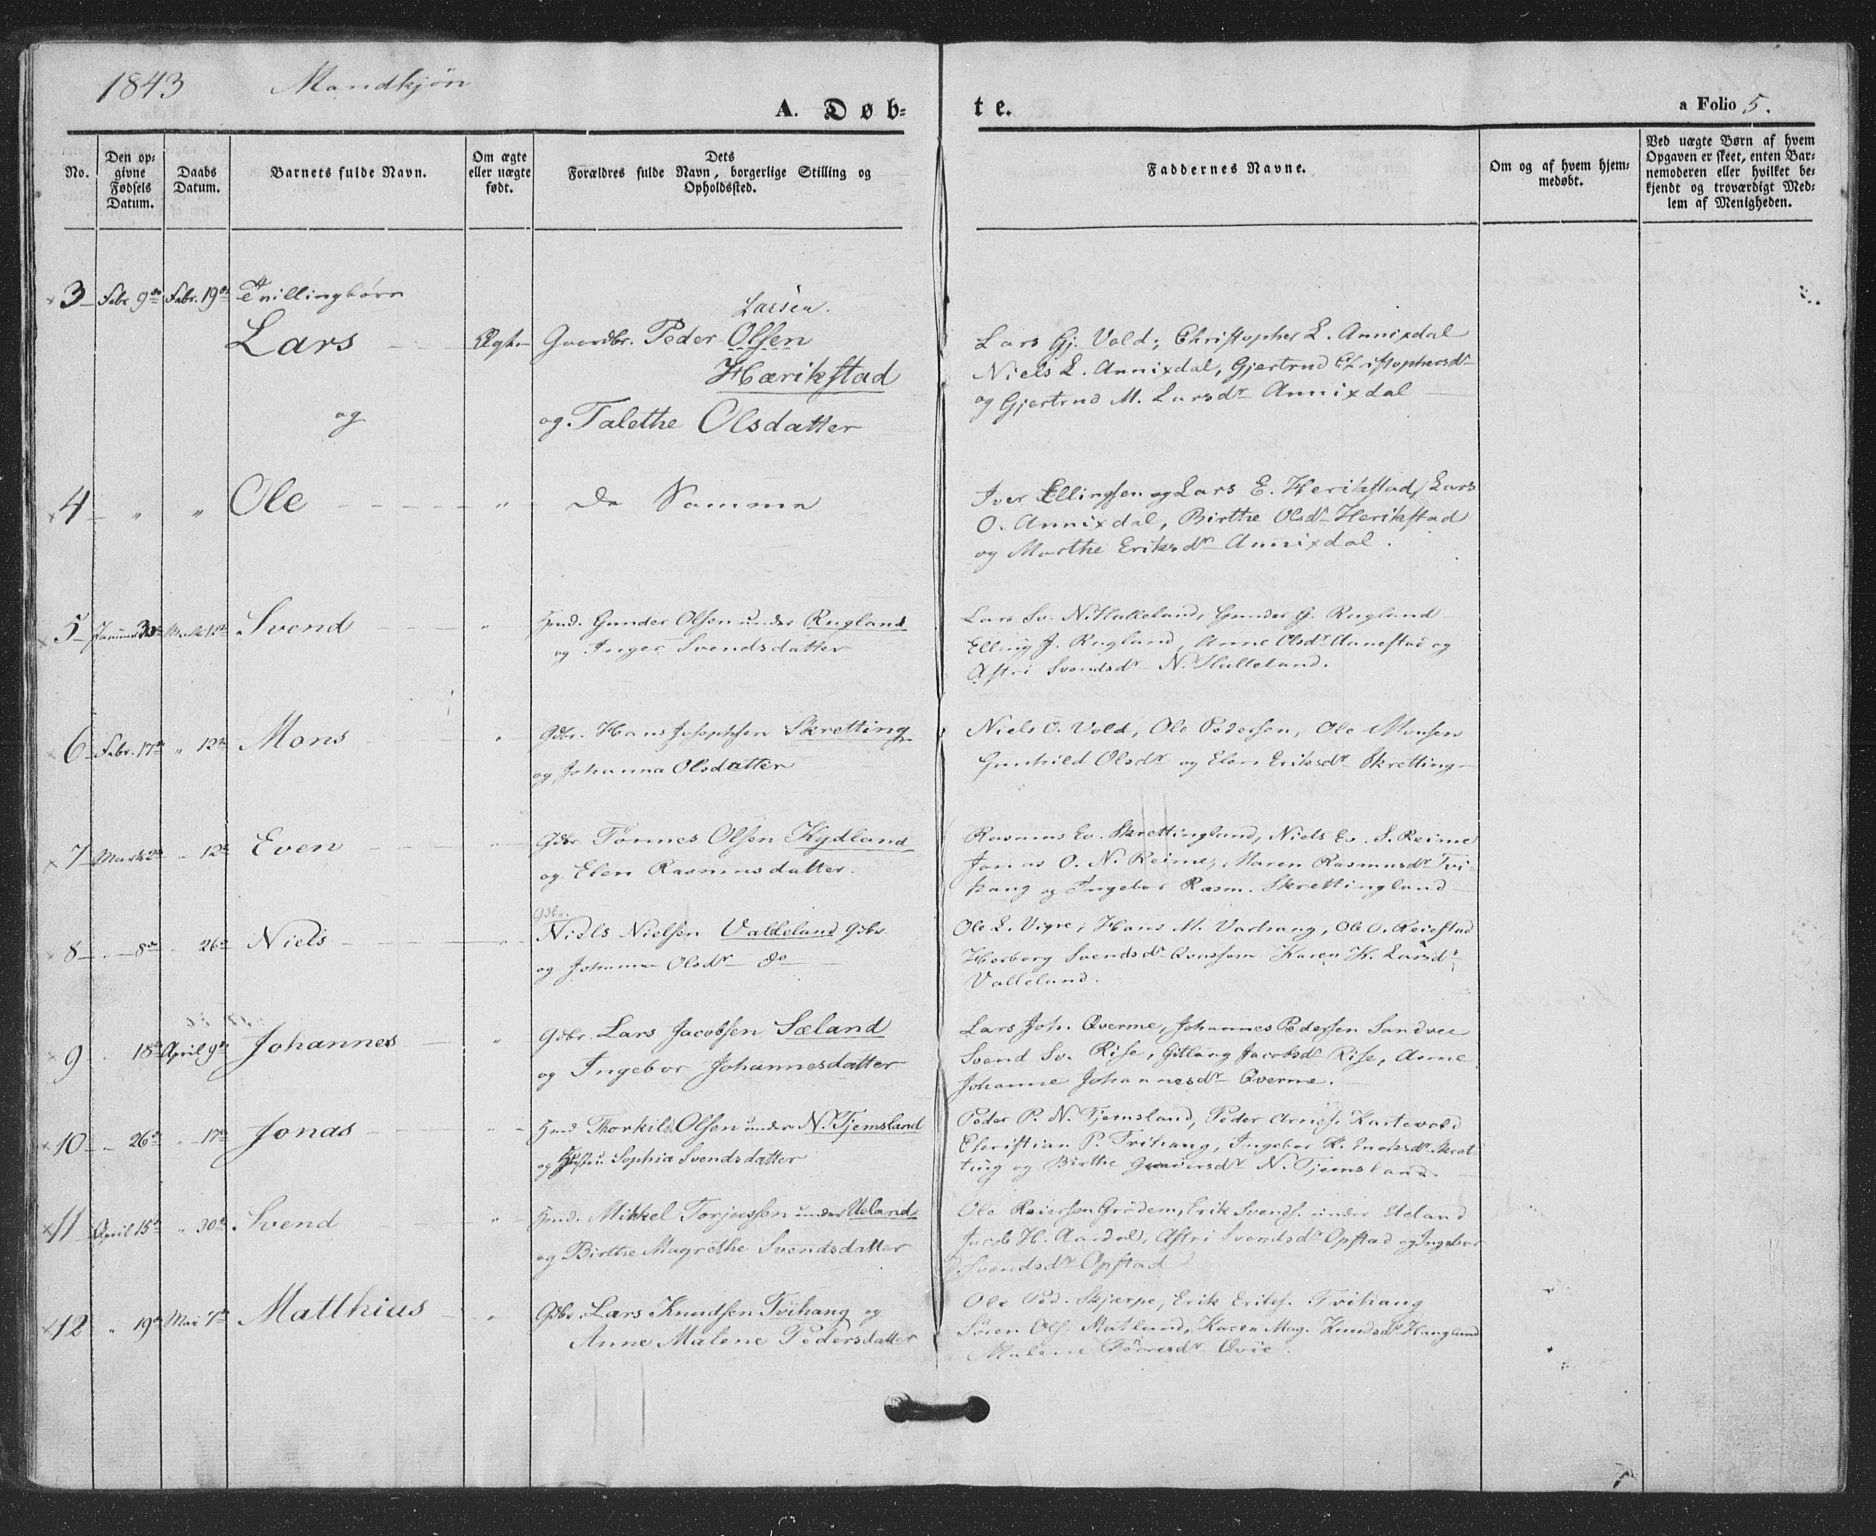 1843 Mandkjøn
A. Døb-
te.
a Folio 5.
No.
Den op-
givne
Fødsels
Datum.
Daabs
Datum.
Barnets fulde Navn.
Om ægte
eller uægte
født.
Dets
Forældres fulde Navn, borgerlige Stilling og
Opholdssted.
Faddernes Navne.
Om og af hvem hjem-
medøbt.
Ved uægte Børn af hvem
Opgaven er skeet, enten Bar-
nemoderen eller hvilket be-
kjendt og troværdigt Med-
lem af Menigheden.
3 Febr. 9de Febr. 19de Tvillingbørn
Larsen.
Lars Ægte Gaardbr. Peder Olsen
Hærikstad
og og Talethe Olsdatter
Lars Gj. Vold, Christopher L. Annixdal
Niels L. Annixdal, Gjertrud Christophersdr
og Gjertrud M. Larsdr Annixdal
4 " " Ole " De Samme
Iver Ellingsen og Lars E. Herikstad, Lars
O. Annixdal, Birthe Olsdr Herikstad
og Marthe Eriksdr Annixdal.
5 Januar 30 Marts 12te Svend " Hmd. Gunder Olsen under Rugland
og Inger Svendsdatter
Lars Sv. N. Hulleland, Gunder G. Rugland
Elling J. Rugland, Anne Olsdr Aunestad og
Astri Svendsdr N. Hulleland.
6 Febr. 17de " 12te Mons " Gdbr. Hans Josephsen Skretting
og Johanna Olsdatter
Niels O. Vold, Ole Pedersen, Ole Monsen
Gunhild Olsdr og Elen Eriksdr Skretting
7 Marts 2de " 12te Even " Gdbr Tønnes Olsen Kydland
og Elen Rasmusdatter.
Rasmus Ev. Skrettingland, Niels Ev. S. Reime
Jonas O. N. Reime, Maren Rasmusdr Tvi-
hang og Ingebor Rasm. Skrettingland
8 " 8de " 26de Niels " Gdbr.
Niels Nielsen Valdeland Gdbr
og Johanna Olsdr do
Ole L. Vigre, Hans M. Varhaug, Ole O. Reiestad
Herborg Svendsdr Karen K. Larsdr
Valleland.
9 " 18de April 9de Johannes " Gdbr. Lars Jacobsen Sæland
og Ingebor Johannesdatter
Lars Joh. Qverme, Johannes Pedersen Sandvee
Svend Sv. Rise, Gitlaug Jacobsdr Rise, Anne
Johanne Johannesdr Qverme.
10 " 26de " 17de Jonas " Hmd Thorkild Olsen under N. Tjemsland
og Hustru Sophia Svendsdatter
Peder P. N. Tjemsland, Peder Arnes. Kartevold
Christian P. Tvihaug, Ingebor R. Skret-
ting og Birthe Gundersdr N. Tjemsland
11 April 15de " 30te Svend " Hmd. Mikkel Torjussen under Ueland
og Birthe Magrethe Svendsdatter
Ole Reiersen Grødem, Erik Svends. under Ueland
Jacob H. Aardal, Astri Svendsdr Opstad og Ingebor
Svendsdr Opstad
12 " 19de Mai 7de Matthias " Gdbr. Lars Knudsen Tvihaug og
Anne Malene Pedersdatter
Ole Ped. Skjærpe, Erik Eriks. Tvihaug
Søren Ols. Matland, Karen Mag. Knudsdr Haugland
Malene Tørresdr Qvie.